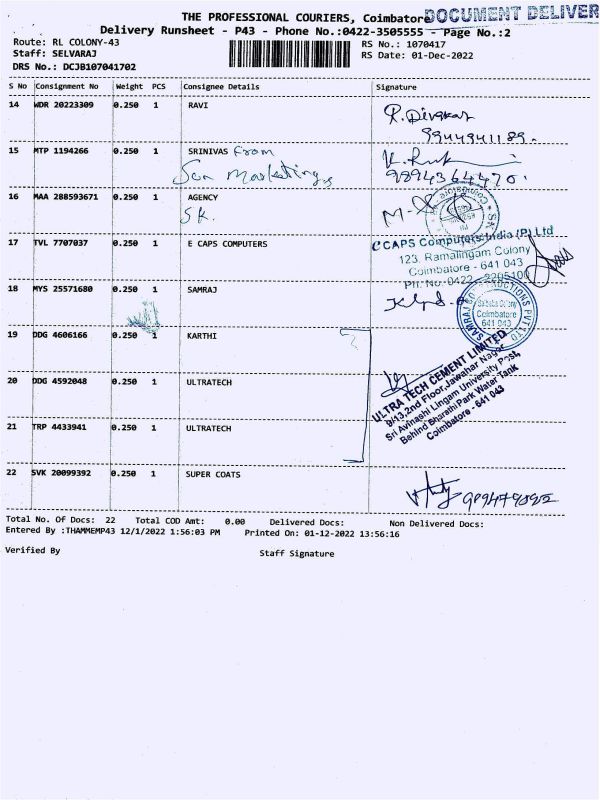 THE PROFESSIONAL COURIERS, Coimbatore
DOCUMENT DELIVER
Delivery Runsheet - P43 - Phone No.:0422-3505555 - Page No.:2
Route: RL COLONY-43
RS No.: 1070417
Staff: SELVARAJ
RS Date: 01-Dec-2022
DRS No.: DCJB107041702
S No Consignment No Weight PCS Consignee Details Signature
14 WDR 20223309 0.250 1 RAVI
R. Divakar
9944941189.
15 MTP 1194266 0.250 1 SRINIVAS From
Sun Marketing,
9894364470.
16 MAA 288593671 0.250 1 AGENCY
SK.
17 TVL 7707037 0.250 1 E CAPS COMPUTERS
CAPS Computers India (P) Ltd
123, Ramalingam Colony
Coimbatore - 641 043
Ph: No:0422 - 2205100
18 MYS 25571680 0.250 1 SAMRAJ
Saibaba Colony
Coimbatore
641 043
19 DDG 4606166 0.250 1 KARTHI
20 DDG 4592048 0.250 1 ULTRATECH
ULTRA TECH CEMENT LIMITED
9/13,2nd Floor,Jawahar Nagar
Sri Avinashi Lingam University Post,
Behind Bharathi Park Water Tank
Coimbatore - 641 043
21 TRP 4433941 0.250 1 ULTRATECH
22 SVK 20099392 0.250 1 SUPER COATS
Total No. Of Docs: 22 Total COD Amt: 0.00 Delivered Docs: Non Delivered Docs:
Entered By :THAMMEMP43 12/1/2022 1:56:03 PM Printed On: 01-12-2022 13:56:16
Verified By
Staff Signature